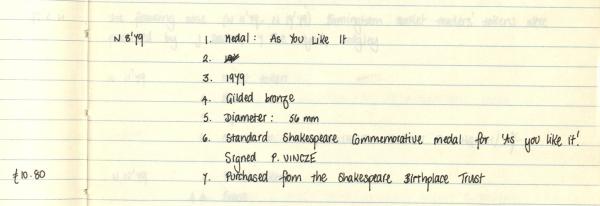 N 8'79 1. Medal: As You Like It
2.
3. 1979
4. Gilded bronze
5. Diameter: 56 mm
6. Standard Shakespeare Commemorative medal for 'As you like it'.
Signed P. VINCZE
£10.80 7. Purchased from the Shakespeare Birthplace Trust